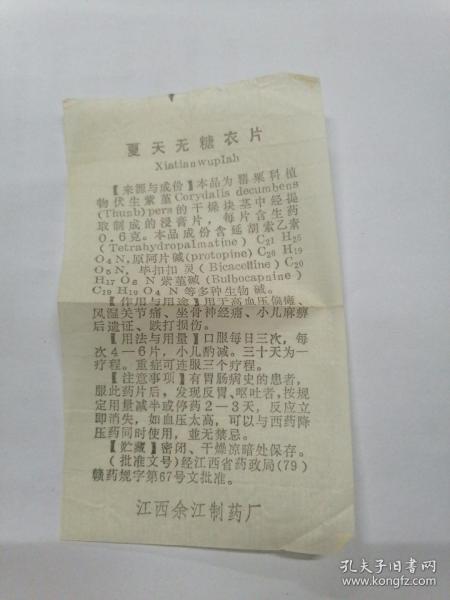 夏天无糖衣片
Xiatianwuplah
【来源与成份】本品为罂粟科植
物伏生紫堇Corydalis decumbens
(Thunb)pers的干燥块茎中经提
取制成的浸膏片，每片含生药
0.6克。本品成份含延胡索乙素
(Tetrahydropalmatine) C21 H25
O4N,原阿片碱(protopine)C20 H19
O5N，毕扣扣灵(Bicacelline)C20
H17 O6 N 紫堇碱(Bulbocapnine)
C19 H19 O4 N等多种生物碱。
【作用与用途】用于高血压偏瘫、
风湿关节痛、坐骨神经痛、小儿麻痹
后遗证、跌打损伤。
【用法与用量】口服每日三次，每
次4—6片，小儿酌减。三十天为一
疗程。重症可连服三个疗程。
【注意事项】有胃肠病史的患者，
服此药片后，发现反胃、呕吐者，按规
定用量减半或停药2—3天，反应立
即消失，如血压太高，可以与西药降
压药同时使用，並无禁忌。
【贮藏】密闭、干燥凉暗处保存。
(批准文号)经江西省药政局(79)
赣药规字第67号文批准。
江西余江制药厂
孔夫子旧书网
www.kongfz.com